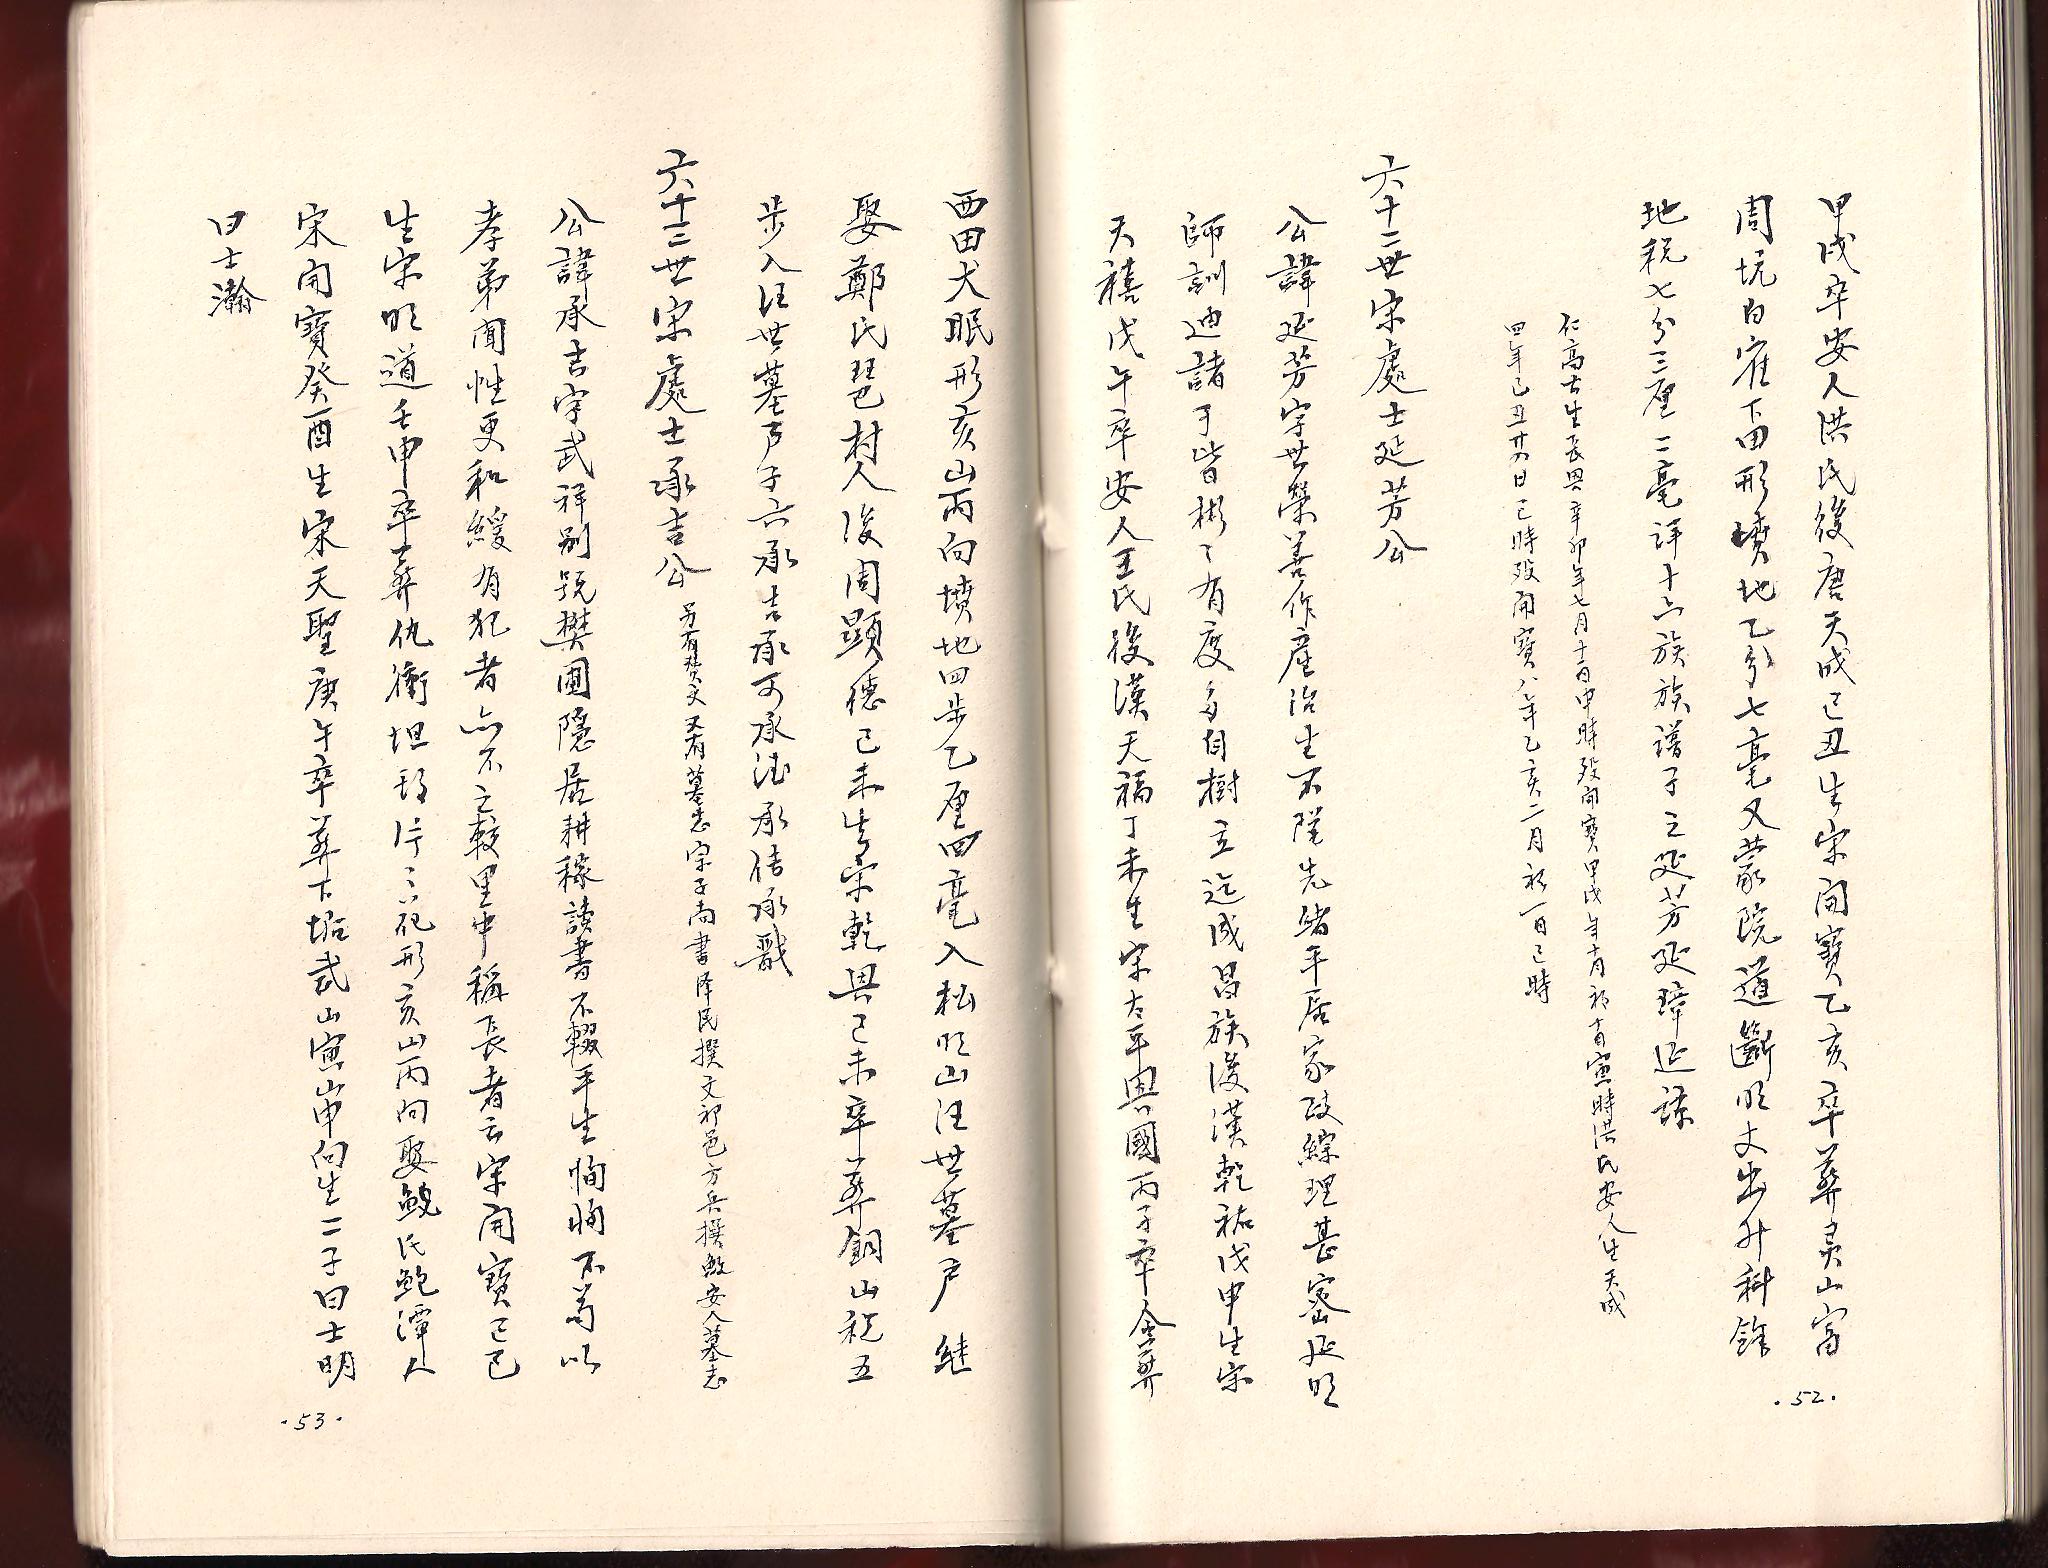 甲戌卒安人洪氏後唐天成己丑生宋開寶乙亥卒葬灵山富
周坑白崔下田形墳地乙分七毫又蒙院道斷明丈出升科餘
地税七分三厘二毫详十六族族譜子三延芳延璋延諒
仁高古生長興辛卯年七月十二日申時歿開寶甲戌年十月初十日寅時洪氏安人生天成
四年己丑廿八日巳時歿開寶八年乙亥二月初一日巳時
六十二世宋處士延芳公
公諱延芳字世榮善作產治生不墜先緒平居家政綜理甚密延明
師訓迪諸子皆彬彬有度各自樹立迄成昌族後漢乾祐戊申生宋
天禧戊午卒安人王氏後漢天福丁未生宋太平興國丙子卒合葬
·52·
西田犬眠形亥山丙向墳地四步乙厘四毫入松明山汪世墓户 继
娶鄭氏琶村人後周顯德己未生宋乾興己未卒葬銅山税五
步入汪世墓户子六承吉承可承法承信承戬
六十三世宋處士承吉公 另有贊文 又有墓志宗子尚書泽民撰文祁邑方兵撰鮑安人墓志
公諱承吉字武祥别號樊圃隱居耕稼讀書不輟平生恂恂不苟以
孝弟聞性更和緩有犯者亦不之較里中稱長者云宋開寶己巳
生宋明道壬申卒葬仇衝坦 形亥山丙向娶鲍氏鲍潭人
宋開寶癸酉生宋天聖庚午卒葬下坞武山寅山申向生二子曰士明
曰士瀚
·53·